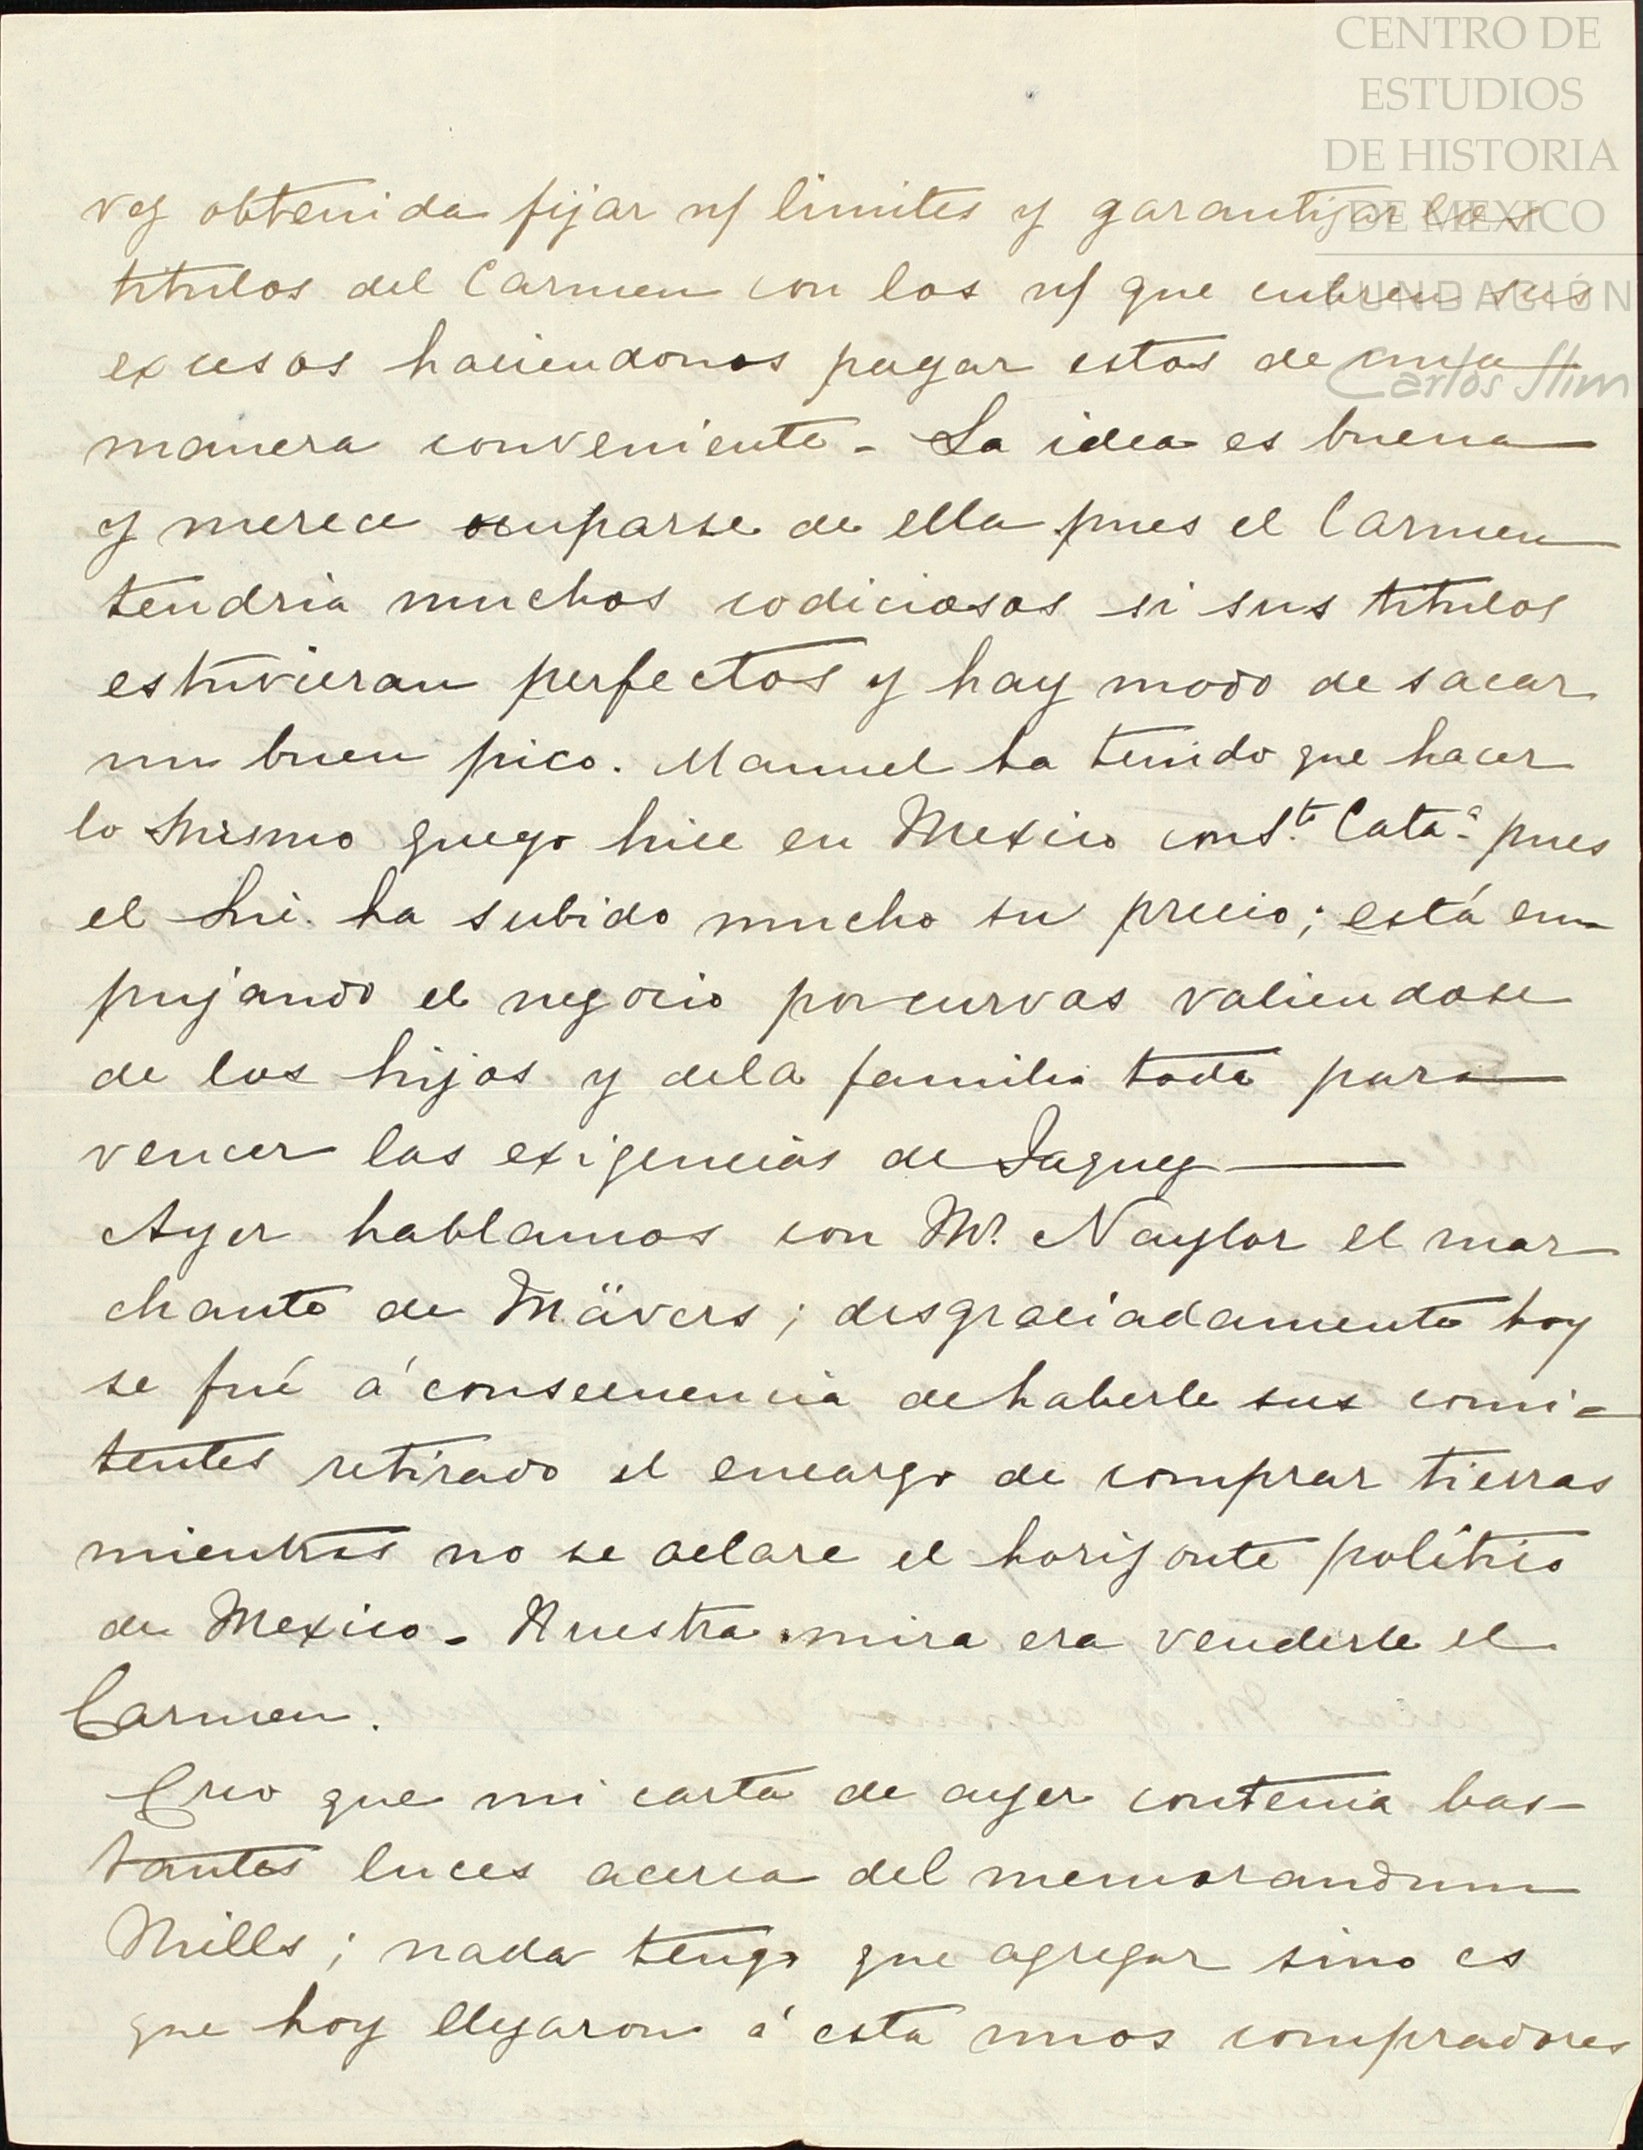 CENTRO DE
ESTUDIOS
DE HISTORIA
DE MEXICO
FUNDACIÓN
Carlos Slim
vez obtenida fijar n/ limites y garantizar los
titulos del Carmen con los n/ que cubren sus
excesos haciendonos pagar estos de una
manera conveniente - La idea es buena
y merece ocuparse de ella pues el Carmen
tendria muchos codiciosos si sus titulos
estuvieran perfectos y hay modo de sacar
un buen pico. Manuel ha tenido que hacer
lo mismo que yo hice en Mexico con Sta Catana pues
el ha subido mucho su precio; está em-
pujando el negocio por curvas valiendose
de los hijos y de la familia toda para
vencer las exigencias de Jaquez
Ayer hablamos con Mr. Naylor el mar
chante de Mävers; desgraciadamente hoy
se fué á consecuencia de haberle sus comi-
tentes retirado el encargo de comprar tierras
mientras no se aclare el horizonte politico
de Mexico - Nuestra mira era venderle el
Carmen.
Creo que mi carta de ayer contenia bas-
tantes luces acerca del memorandum
Mills; nada tengo que agregar sino es
que hoy llegaron á esta unos compradores